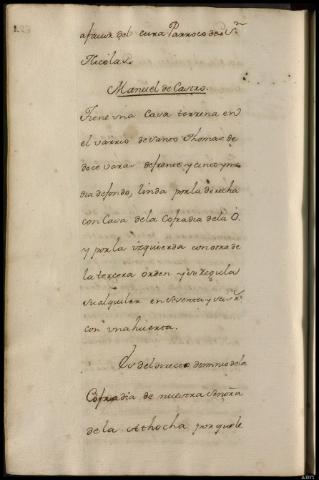 afavor del cura Parroco de Sn.
Nicolas.
Manuel de Castro.
Tiene una Casa terrena en
el varrio de Santo Thomas de
doce varas de frente, y cinco y me
dia de fondo, linda por la derecha
con Casa de la Cofradia de la O.
y por la izquierda con otra de
la tercera Orden y se regula
su alquiler en sesenta y rs.
con una huerta.
Es del directo dominio de la
Cofradia de nuestra Señora
de la Athocha por que le